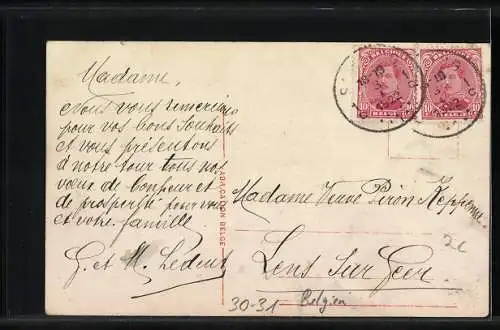 Madame,
Nous vous remercions
pour vos bons souhaits
et vous présentons
à notre tour tous nos
vœux de bonheur et
de prospérité pour vous
et votre famille
G. et M. Ledent
FABRICATION BELGE
BELGIQUE
BELGIQUE
10 BELGIË 10
10 BELGIË 10
Madame Veuve Piron
Lens Sur Geer
2€
30-31 Belgien